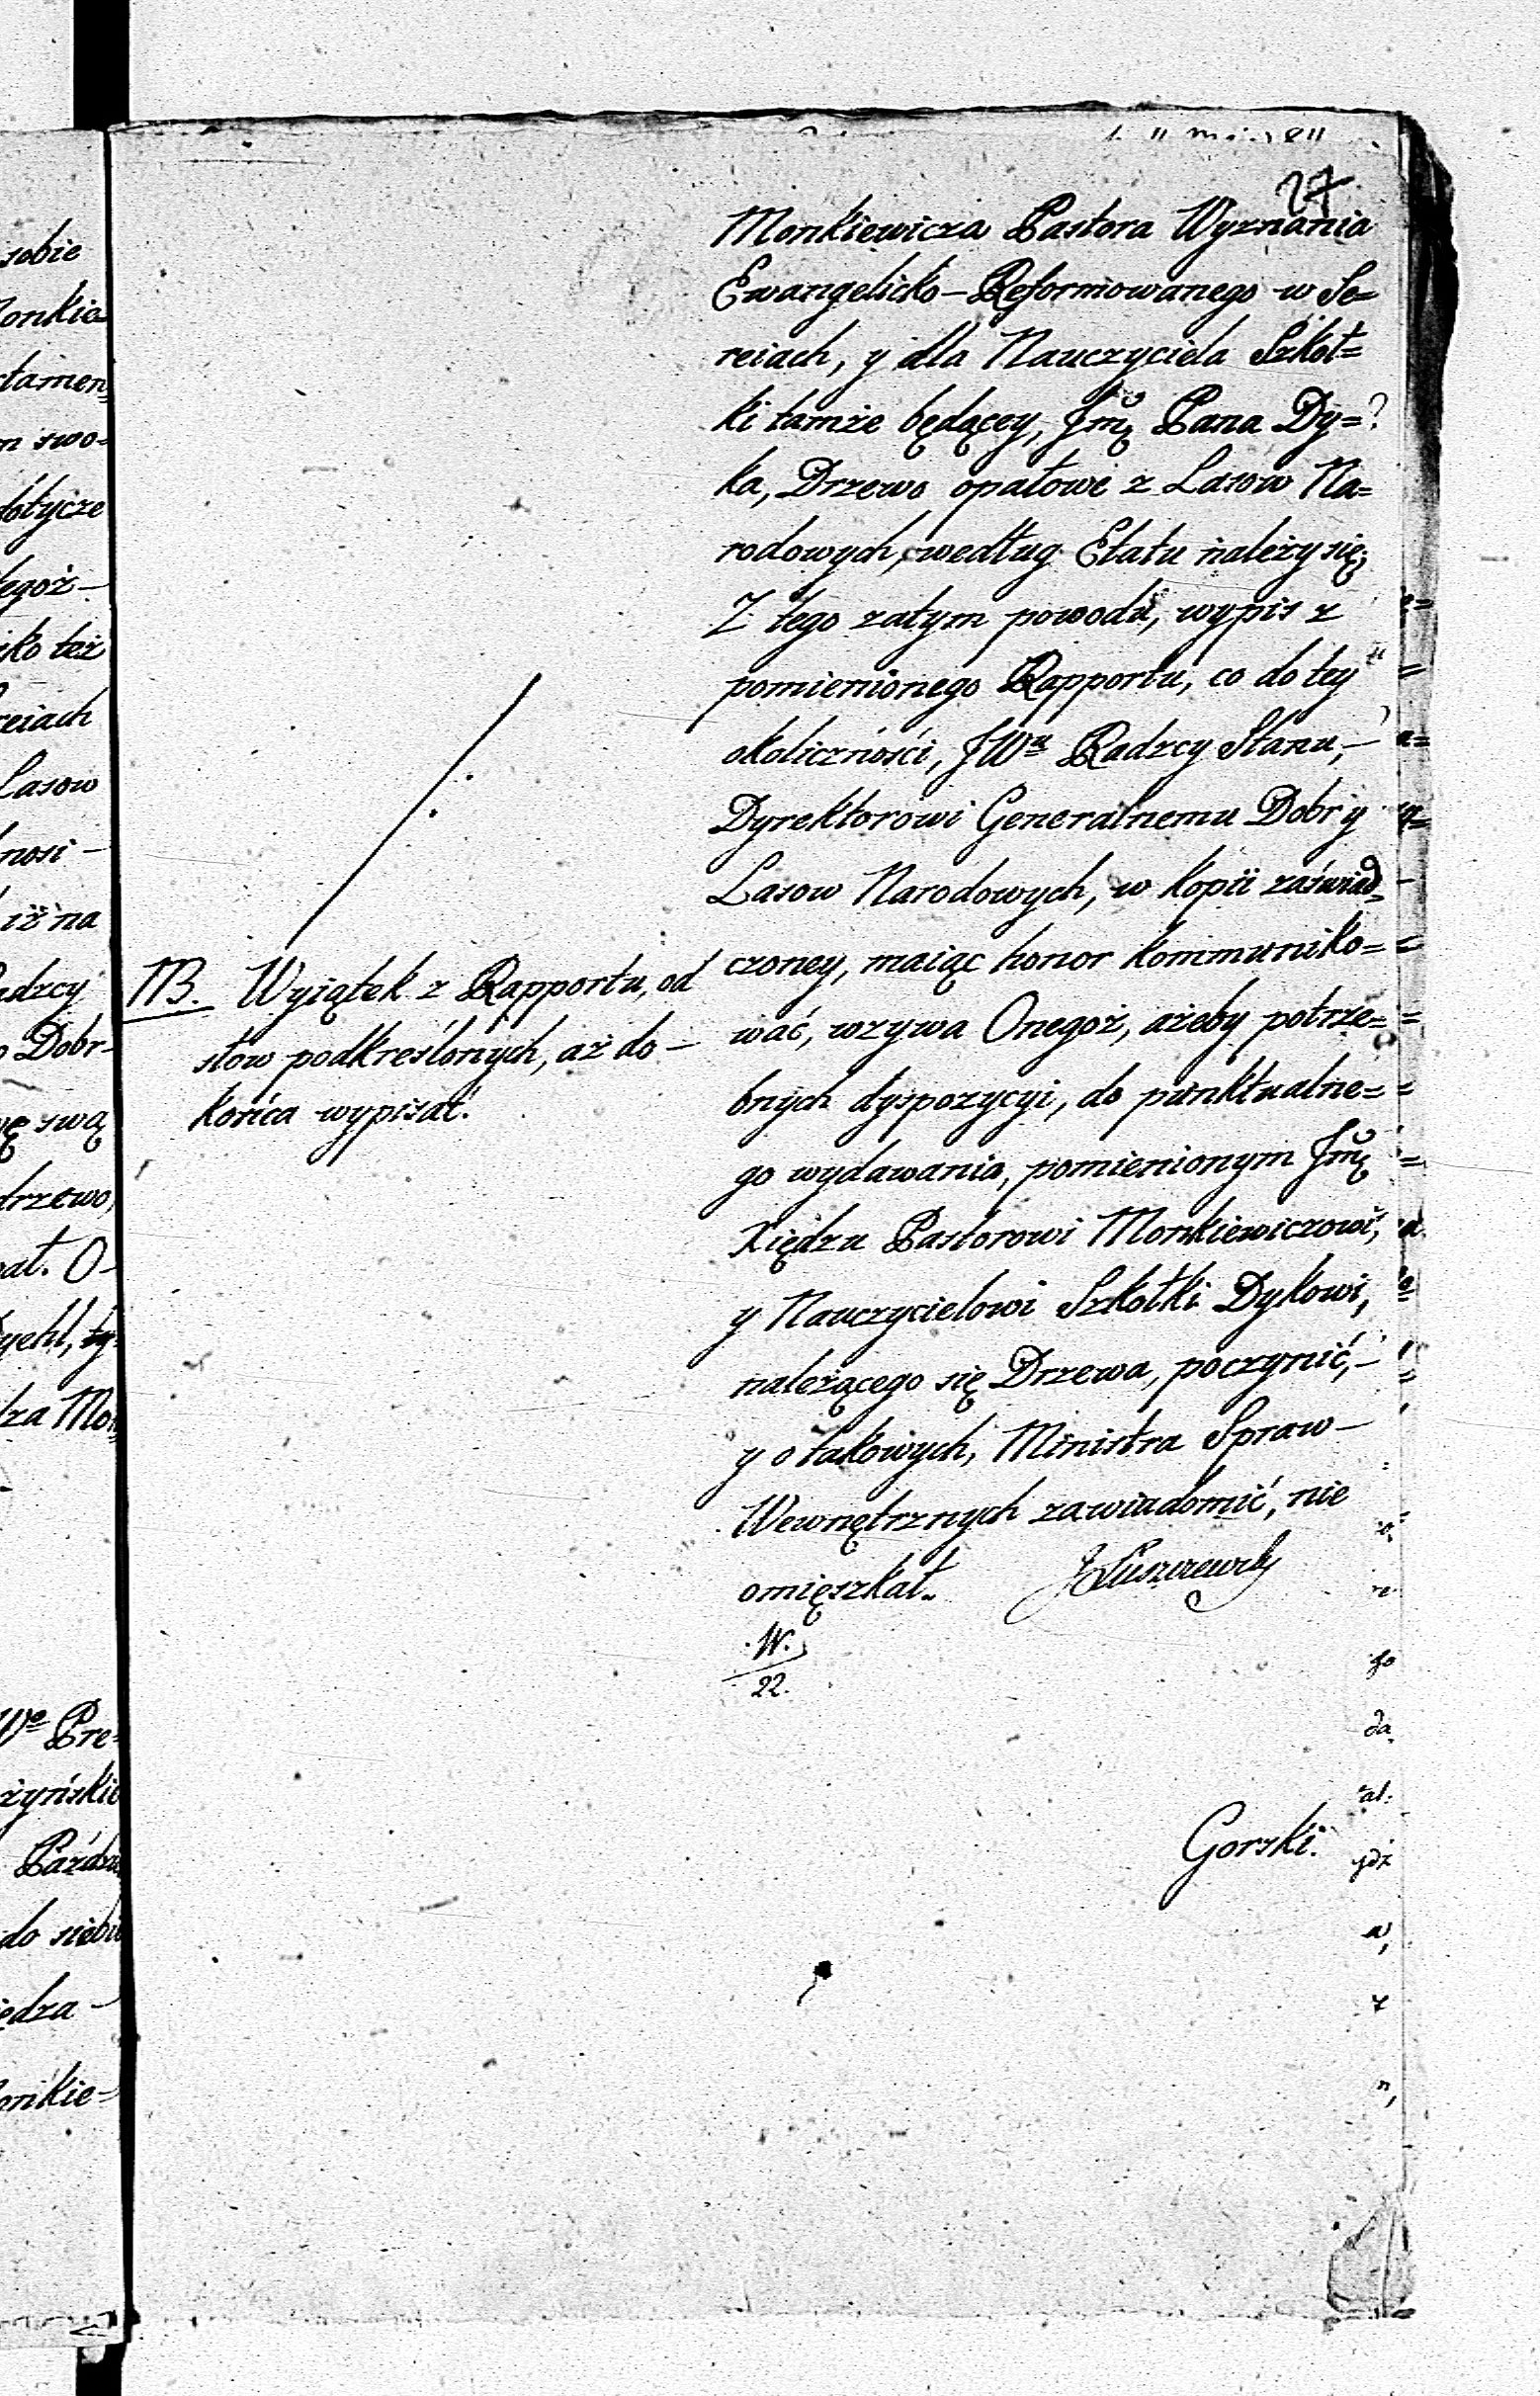 27
Monkiewicza Pastora Wyznania
Ewangelicko-Reformowanego w Se=
reiach, y dla Nauczyciela Szkoł=
ki tamże będącey, Jmę Pana Dy=
ka, Drzewo opałowe z Lasow Na=
rodowych, według Etatu należy się;
Z tego zatym powodu, wypis z
pomienionego Rapportu, co do tey
okoliczności, JWu Radzcy Stanu,-
Dyrektorowi Generalnemu Dobr y
Lasow Narodowych, w kopii zaświad=
czoney, maiąc honor kommuniko=
wać, wzywa Onegoż, ażeby potrze=
bnych dyspozycyi, do punktualne=
go wydawania, pomienionym Jmę
Xiędzu Pastorowi Monkiewiczowi,
y Nauczycielowi Szkołki Dykowi,
należącego się Drzewa, poczynić,-
y o takowych, Ministra Spraw-
Wewnętrznych zawiadomić, nie
omięszkał.
JŁuszczewski
W.
22.
Gorski.
NB. Wyiątek z Rapportu, od
słow podkreślonych, aż do-
końca wypisać.
sobie
onkie
tamen
swo=
dotycze
tegoż-
iko też
reiach
Lasow
nosi-
iż na
adzcy
Dobr-
swą
drzewo,
O-
yehl,
dza Mon
We Pre=
żyńskie
Paźdz
do siebie
iędza-
onkie=